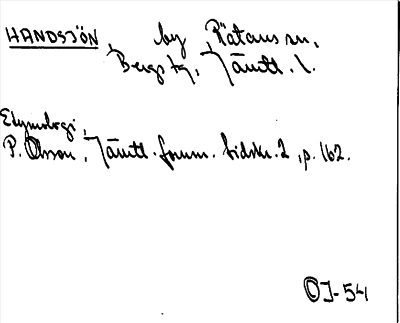 HANDSJÖN, by, Rätans sn,
Bergs tg, Jämtl. l.
Etymologi,
P. Olsson, Jämtl. fornm. tidskr. 2, p. 162.
OJ-54